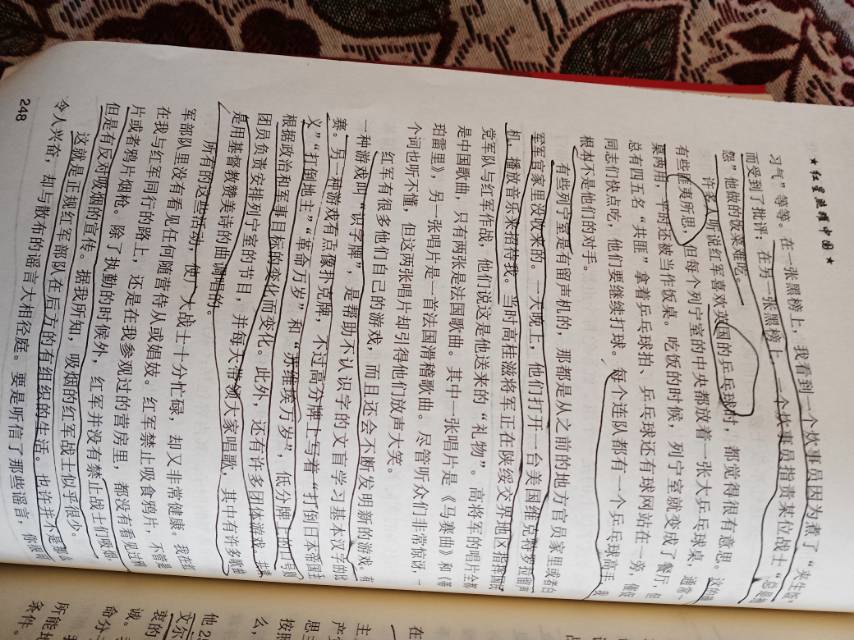 ★红星照耀中国★
习气”等等。在一张黑榜上，我看到一个炊事员因为煮了“夹生饭”
而受到了批评；在另一张黑榜上，一个炊事员指责某位战士“总是抱
怨”他做的饭菜难吃。
许多人听说红军喜欢英国的乒乓球时，都觉得很有意思。这的确
有些匪夷所思，但每个列宁室的中央都放着一张大乒乓球桌，通常
桌两用，平时还被当作饭桌。吃饭的时候，列宁室就变成了餐厅，但
总有四五名“共匪”拿着乒乓球拍、乒乓球还有球网站在一旁，催促
同志们快点吃，他们要继续打球。每个连队都有一个乒乓球高手，我
根本不是他们的对手。
有些列宁室是有留声机的，那都是从之前的地方官员家里或者白
军军官家里没收来的。一天晚上，他们打开一台美国维克特罗拉留声
机，播放音乐来招待我。当时高桂滋将军正在陕绥交界地区指挥国民
党军队与红军作战，他们说这是他送来的“礼物”。高将军的唱片全都
是中国歌曲，只有两张是法国歌曲。其中一张唱片是《马赛曲》和《蒂
珀雷里》，另一张唱片是一首法国滑稽歌曲。尽管听众们非常惊讶，一
个词也听不懂，但这两张唱片却引得他们放声大笑。
红军有很多他们自己的游戏，而且还会不断发明新的游戏。有
一种游戏叫“识字牌”，是帮助不认识字的文盲学习基本汉字的比
赛。另一种游戏有点像扑克牌，不过高分牌上写着“打倒日本帝国主
义”“打倒地主”“革命万岁”和“苏维埃万岁”，低分牌上的口号则
根据政治和军事目标的变化而变化。此外，还有许多团体游戏。共青
团员负责安排列宁室的节目，并每天带领大家唱歌，其中有许多歌曲
是用基督教赞美诗的曲调唱的。
所有的这些活动，使广大战士十分忙碌，却又非常健康。我在红
军部队里没有看见任何随营侍从或娼妓。红军禁止吸食鸦片，不管是
在我与红军同行的路上，还是在我参观过的营房里，都没有看见过鸦
片或者鸦片烟枪。除了执勤的时候外，红军并没有禁止战士们吸烟，
但是有反对吸烟的宣传。据我所知，吸烟的红军战士似乎很少。
这就是正规红军部队在后方的有组织的生活。也许并不是那么
令人兴奋，却与散布的谣言大相径庭。要是听信了那些谣言，你很可
248